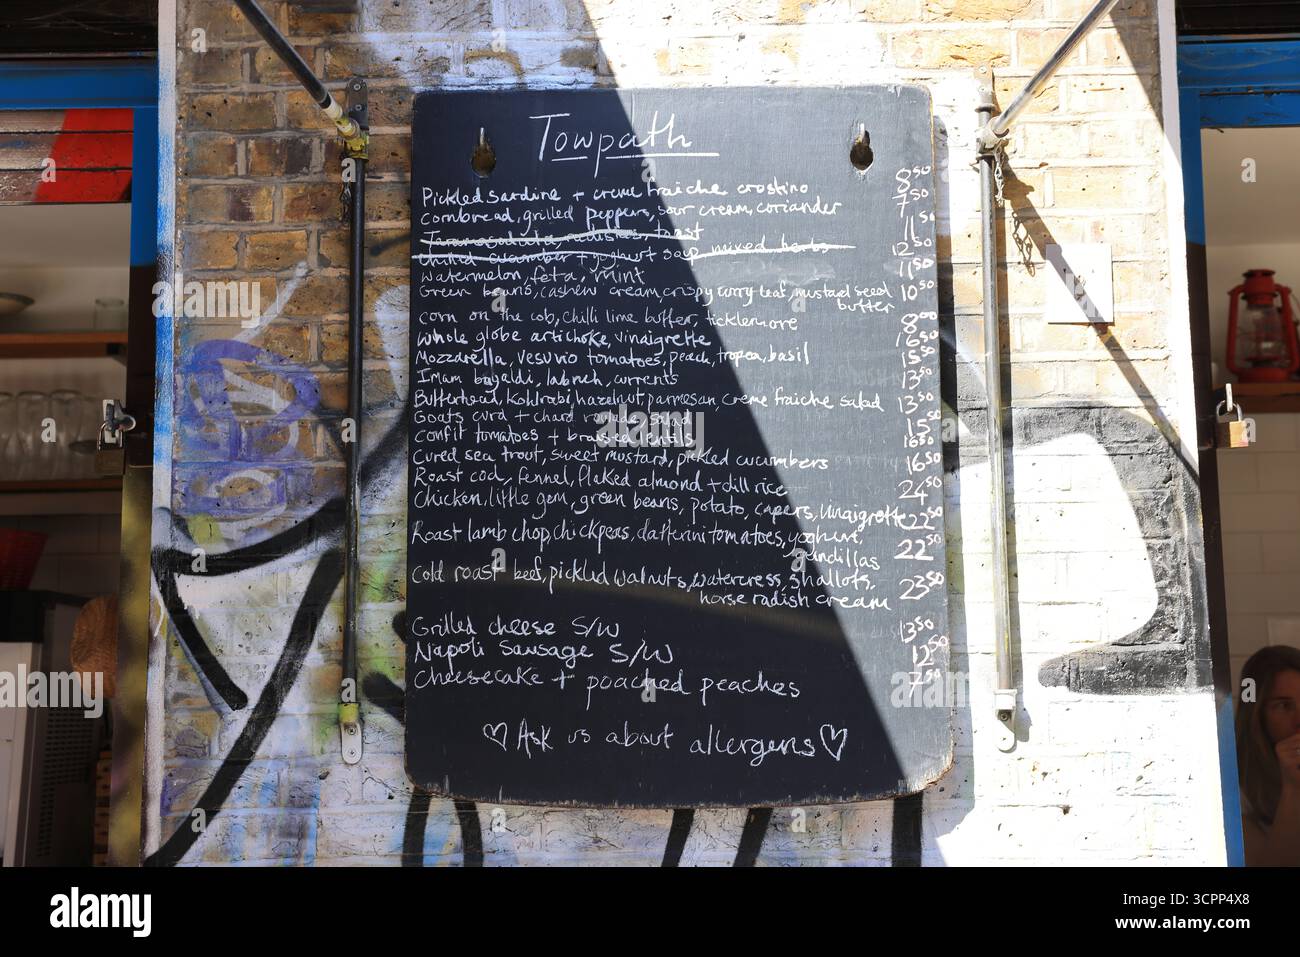 Towpath
Pickled sardine + creme fraiche crostino 8⁵⁰
Cornbread, grilled peppers, sour cream, coriander 7⁵⁰
Taramasalata, radishes, toast 11⁵⁰
Chilled cucumber + yoghurt soup mixed herbs 12⁵⁰
Watermelon, feta, mint 11⁵⁰
Green beans, cashew cream, crispy curry leaf, mustard seed 10⁵⁰
butter
corn on the cob, chilli lime butter, ticklemore 8⁰⁰
whole globe artichoke, vinaigrette
Mozzarella, Vesuvio tomatoes, peach, tropea, basil 15⁵⁰
Imam bayaldi, labneh, currents 13⁵⁰
Butterhead, Kohlrabi, hazelnut, parmesan, creme fraiche salad 13⁵⁰
Goats curd + chard roulade, salad 15⁵⁰
Confit tomatoes + braised lentils 16⁵⁰
Cured sea trout, sweet mustard, pickled cucumbers 16⁵⁰
Roast cod, fennel, flaked almond + dill rice 24⁵⁰
Chicken, little gem, green beans, potato, capers, vinaigrette 22⁵⁰
Roast lamb chop, chickpeas, datterini tomatoes, yoghurt, 22⁵⁰
grandillas
Cold roast beef, pickled walnuts, watercress, shallots, 23⁵⁰
horseradish cream
Grilled cheese S/W 13⁵⁰
Napoli sausage S/W 12⁵⁰
Cheesecake + poached peaches 7⁵⁰
♡ Ask us about allergens ♡
alamy
Image ID: 3CPP4X8
www.alamy.com